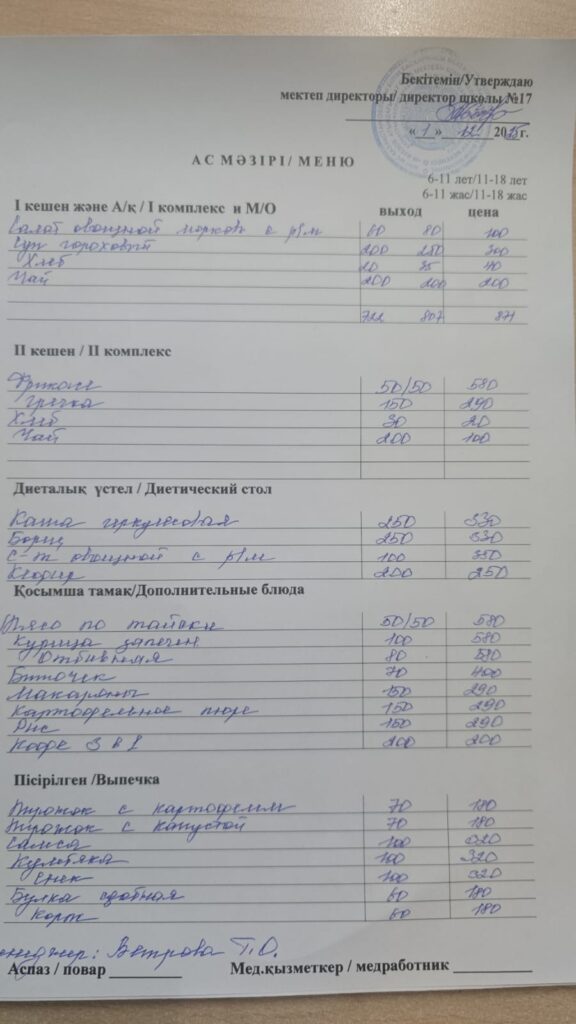 Бекітемін/Утверждаю
мектеп директоры/ директор школы №17
« 1 » 12 2025 г.
АС МӘЗІРІ/ МЕНЮ
6-11 лет/11-18 лет
6-11 жас/11-18 жас
І кешен және А/қ / І комплекс и М/О выход цена
Салат овощной морковь с р/м 60 80 100
Суп гороховый 200 250 300
Хлеб 20 35 40
Чай 200 200 200
722 807 871
ІІ кешен / ІІ комплекс
50/50 580
гречка 150 290
Хлеб 30 20
Чай 200 100
Диеталық үстел / Диетический стол
Каша геркулесовая 250 330
Борщ 250 330
С-т овощной с р/м 100 350
Кефир 200 250
Қосымша тамақ/Дополнительные блюда
Мясо по тайски 50/50 580
Курица запечен 100 580
Отбивная 80 580
Биточек 70 400
Макароны 150 290
Картофельное пюре 150 290
Рис 150 290
Кофе 3 в 1 200 200
Пісірілген /Выпечка
Пирожок с картофелем 70 180
Пирожок с капустой 70 180
Самса 100 320
Кулебяка 100 320
100 320
Булка сдобная 60 180
Корж 60 180
енеджер: Ветрова Т.О.
Аспаз / повар Мед.қызметкер / медработник